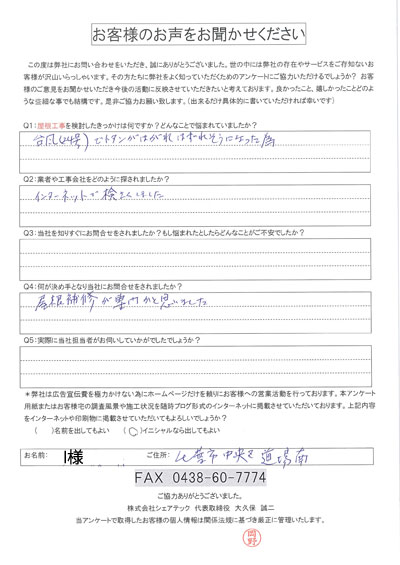 お客様のお声をお聞かせください
この度は弊社にお問い合わせをいただき、誠にありがとうございました。世の中には弊社の存在やサービスをご存知ないお
客様が沢山いらっしゃいます。その方たちに弊社をよく知っていただくためのアンケートにご協力いただけるでしょうか？ お客
様のご意見をお聞かせいただき今後の活動に反映させていただきたいと考えております。良かったこと、嬉しかったことどのよ
うな些細な事でも結構です。是非ご協力お願い致します。（出来るだけ具体的に書いていただければ幸いです）
Q1：屋根工事を検討したきっかけは何ですか？どんなことで悩まれていましたか？
台風(24号)でトタンがはがれはずれそうになった為
Q2：業者や工事会社をどのように探されましたか？
インターネットで検さくしました
Q3：当社を知りすぐにお問合せをされましたか？もし悩まれたとしたらどんなことがご不安でしたか？
Q4：何が決め手となり当社にお問合せをされましたか？
屋根補修が専門かと思いました
Q5：実際に当社担当者がお伺いしていかがでしたでしょうか？
＊弊社は広告宣伝費を極力かけない為にホームページだけを頼りにお客様への営業活動を行っております。本アンケート
用紙またはお客様宅の調査風景や施工状況を随時ブログ形式のインターネットに掲載させていただいております。上記内容
をインターネットや印刷物に掲載させていただいてもよろしいでしょうか？
（　）名前を出してもよい　（○）イニシャルなら出してもよい
お名前： I様 ご住所： 千葉市中央区道場南
FAX 0438-60-7774
ご協力ありがとうございました。
株式会社シェアテック 代表取締役 大久保 誠二
当アンケートで取得したお客様の個人情報は関係法規に基づき厳正に管理いたします。
岡野